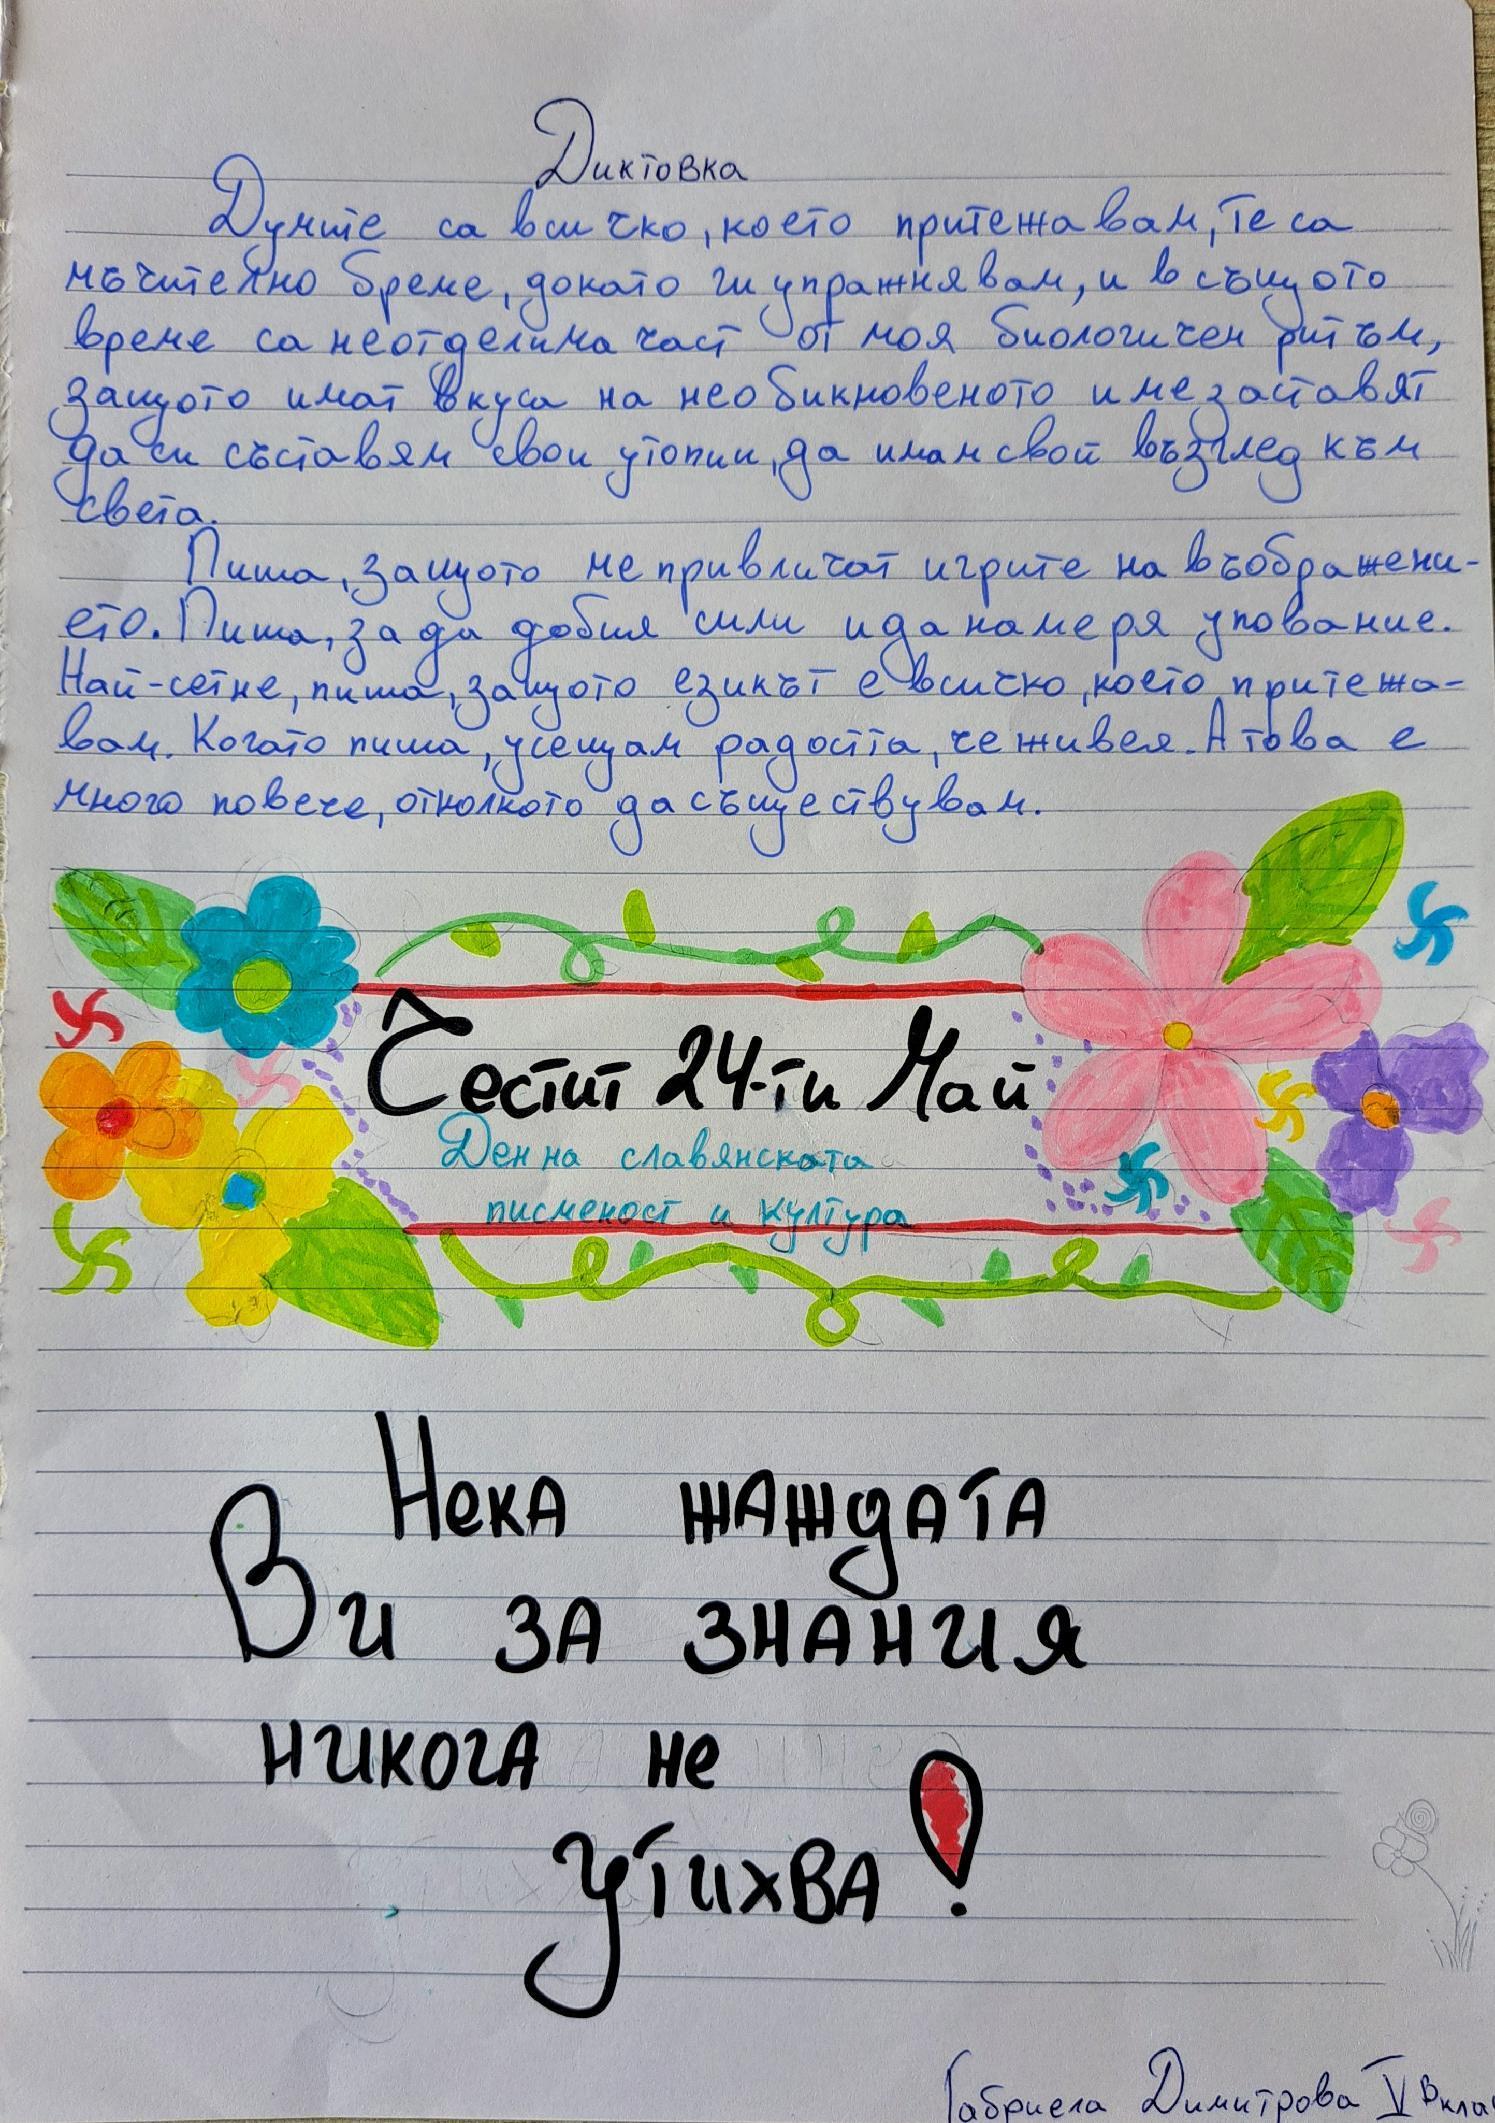 Диктовка
Думите са всичко, което притежавам, Те са
мъчително бреме, докато ги упражнявам, и в същото
време са неотделима част от моя биологичен ритъм,
защото имат вкуса на необикновеното и ме заставят
да си съставям свои утопии, да имам свой възглед към
света.
Пиша, защото ме привличат игрите на въображени-
ето. Пиша, за да добия сили и да намеря упование.
Най-сетне, пиша, защото езикът е всичко, което притежа-
вам. Когато пиша, усещам радостта, че живея. А това е
много повече, отколкото да съществувам.
Честит 24-ти Май
Ден на славянската
писменост и култура
Нека жаждата
Ви за знания
никога не
утихва!
Габриела Димитрова V в кла